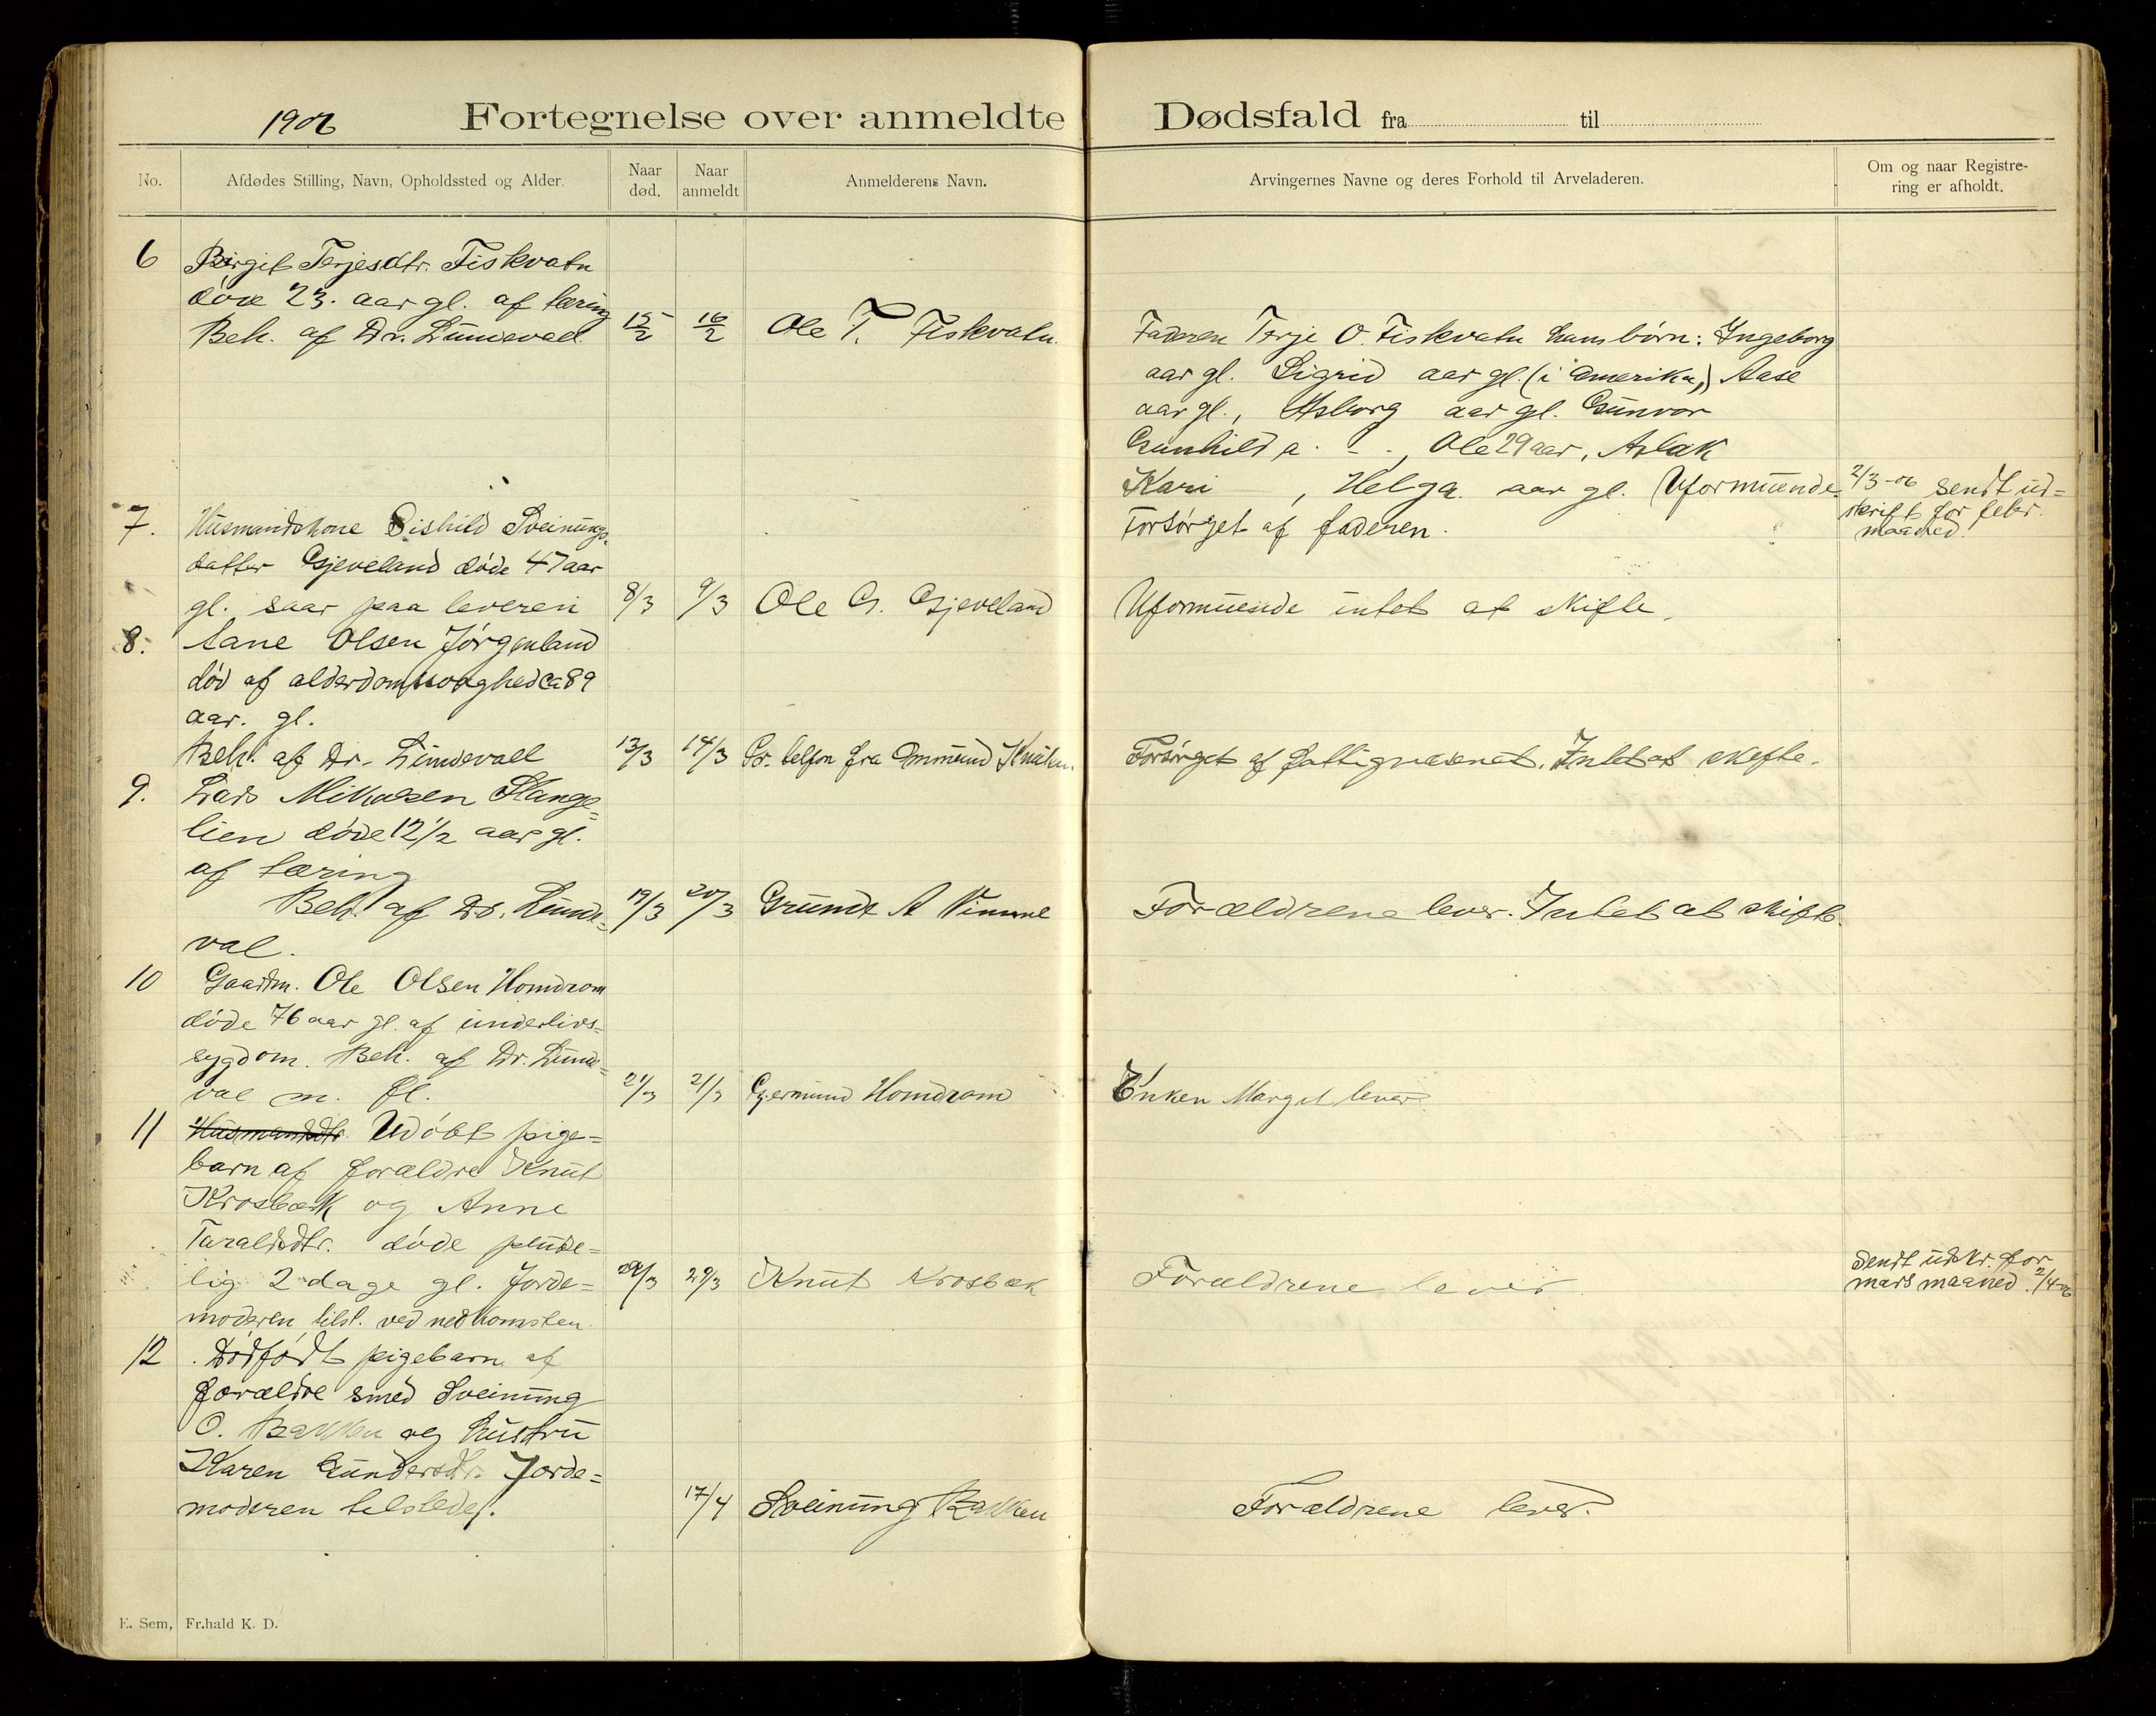 1906 Fortegnelse over anmeldte Dødsfald fra til
No.
Afdødes Stilling, Navn, Opholdssted og Alder.
Naar død.
Naar anmeldt
Anmelderens Navn.
Arvingernes Navne og deres Forhold til Arveladeren.
Om og naar Registre-
ring er afholdt.
6 Birgit Terjesdtr. Fiskvatn
døde 23. aar gl. af tæring
Beh. af Dr. Lundevall 15/2 16/2 Ole T. Fiskvatn.
Faderen Terje O. Fiskvatn hans børn: Ingeborg
aar gl. Sigrid aar gl. (i Amerika,) Aase
aar gl., Asborg aar gl. Gunvor
Gunhild a. - ., Ole 29 aar, Aslak
Kari , Helga aar gl. Uformuende.
Forsørget af faderen.
2/3-06 sendt ud=
skrift for febr.
maaned.
7. Husmandskone Sishild Sveinungs-
datter Gjeveland døde 47 aar
gl. saar paa leveren 8/3 9/3 Ole G. Gjeveland Uformuende intet at skifte.
8. Aane Olsen Jørgenland
død af alderdomssvaghed ca 89
aar. gl.
Beh. af Dr. Lundevall 13/3 14/3 Pr. telfon fra Ommund Knutsen. Forsørget af fattigvæsenet. Intet at skifte.
9. Lars Mikalsen Slange=
lien døde 12 1/2 aar gl.
af tæring
Beh. af Dr. Lunde= 19/3 20/3 Grunde A Vimme Forældrene lever. Intet at skifte.
val.
10 Gaardm. Ole Olsen Homdrom
døde 76 aar gl. af underlivs=
sygdom. Beh. af Dr. Lunde=
val m. fl. 21/3 21/3 Gjermund Homdrom Enken Margit lever.
11 Husmandsdtr. Udøbt pige=
barn af forældre Knut
Krosbæk og Anne
Taraldsdtr. døde pludse=
lig 2 dage gl. Jorde= 29/3 29/3 Knut Krosbæk Forældrene lever
moderen tilst. ved nedkomsten.
Sendt udskr. for
mars maaned. 2/4-06
12 . Dødfødt pigebarn af
forældre smed Sveinung
O. Bakken og hustru
Karen Gundersdtr. Jorde=
moderen tilstede. 17/4 Sveinung Bakken Forældrene lever.
E. Sem, Fr.hald K. D.